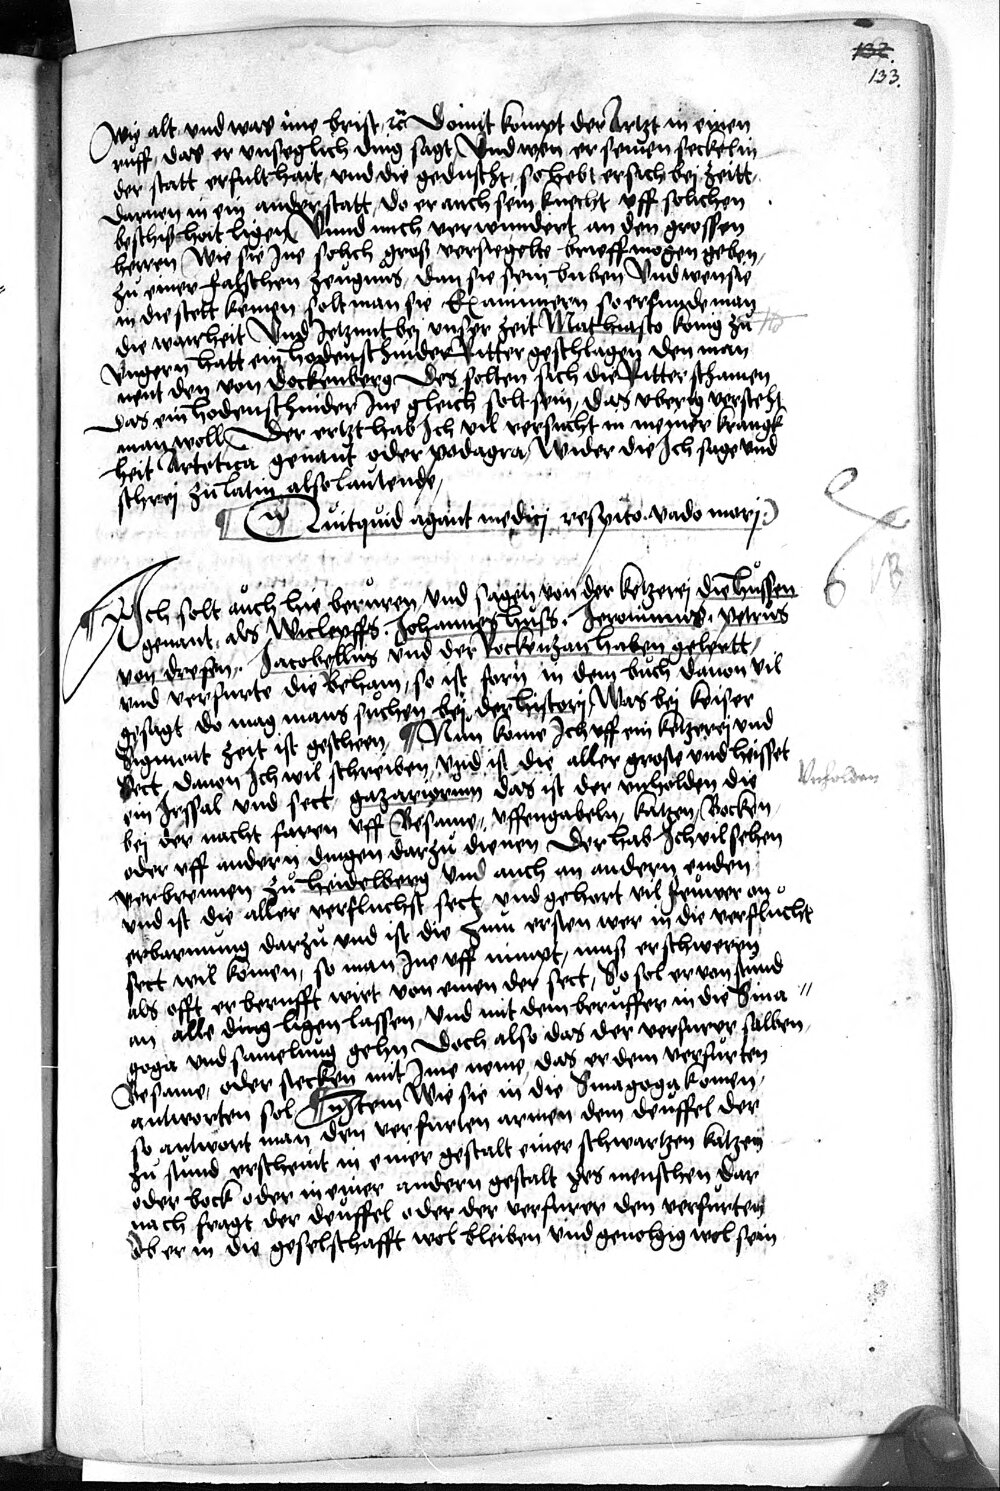 132.
133.
Wÿ alt vnd was ime brist, etc̃ Domit kompt der Artzt in einen
ruff, das er vnseglich ding sagt, Vnd wen er seinen seckel in
der statt erfult hait, vnd die geduscht, so hebt er sich bej zeitt,
dannen in ein ander statt, do er auch sein knecht vff solichen
beschiß hait ligen, Vnnd mich verwundert an den grossen
herren Wie sie Ine solich groß versiegelte brieff mogen geben,
zu einer falschen zeugnüs, dan sie sein buben Vnd wen sie
in die stett kemen solt man sie Examinern so erfunde man
die warheit Vnd Jetzunt bej vnser zeit Mathiasco konig zu
Vngern hatt ein hodenschnider Ritter geschlagen den man
nent den von Dockenberg Des solten sich die Ritter schamen
Das ein hodenschnider Ine gleich solt sein, das vberig versteht
man woll, Der ertzt hab Ich vil versucht in meiner krangk
heit Artetica genant oder podagra, Wider die Ich sage vnd
schrej zu latin also lautende,
Quitquid agant medici respito vado morj
Ich solt auch hie beruren, vnd sagen von der ketzerej die hussen
genant, als Wicleyffs. Johannes huß. Jeronimus. petrus
von dresen. Jacobellus vnd der Rockenzan haben gelertt,
vnd verfurte die Beham, so ist forn in dem buch dauon vil
gesagt do mag mans suchen bej der historj, Was bej keiser
Sigmont zeit ist gescheen, Nun kome Ich vff ein ketzerej vnd
Sect, dauon Ich wil schreiben, vnd ist die aller groste vnd heisset
ein Irssal vnd sect, gazariorum das ist der vnholden die
Vnholden
bej der nacht faren vff Besame, vffengabeln, katzen, Bocken,
oder vff andern dingen darzu dienen Der hab Ich vil sehen
verbrennen zu Heidelberg vnd auch an andern enden
vnd ist die aller verfluchst sect, vnd gehort vil feuwer on
erbarmung darzu vnd ist die Zum ersten wer in die verflucht
sect wil komen, so man Ine vff nimpt, muß er schweren
als offt er berufft wirt von einen der sect, So sol er von stund
an alle ding ligen lassen, vnd mit dem beruffer in die Sina
goga vnd samelung gehn Doch also das der verfurer salben,
Besame, oder stecken mit Ime neme, das er dem verfurten
antworten sol, Jtem Wie sie in die Sinagoga komen,
so antwort man den verfurten armen dem deuffel der
zu stund erscheint in einer gestalt einer schwartzen katzen
oder bock oder in einer andern gestalt des menschen Dar
nach fragt der deuffel oder der verfurer den verfurten
Ob er in die geselschafft wol bleiben vnd